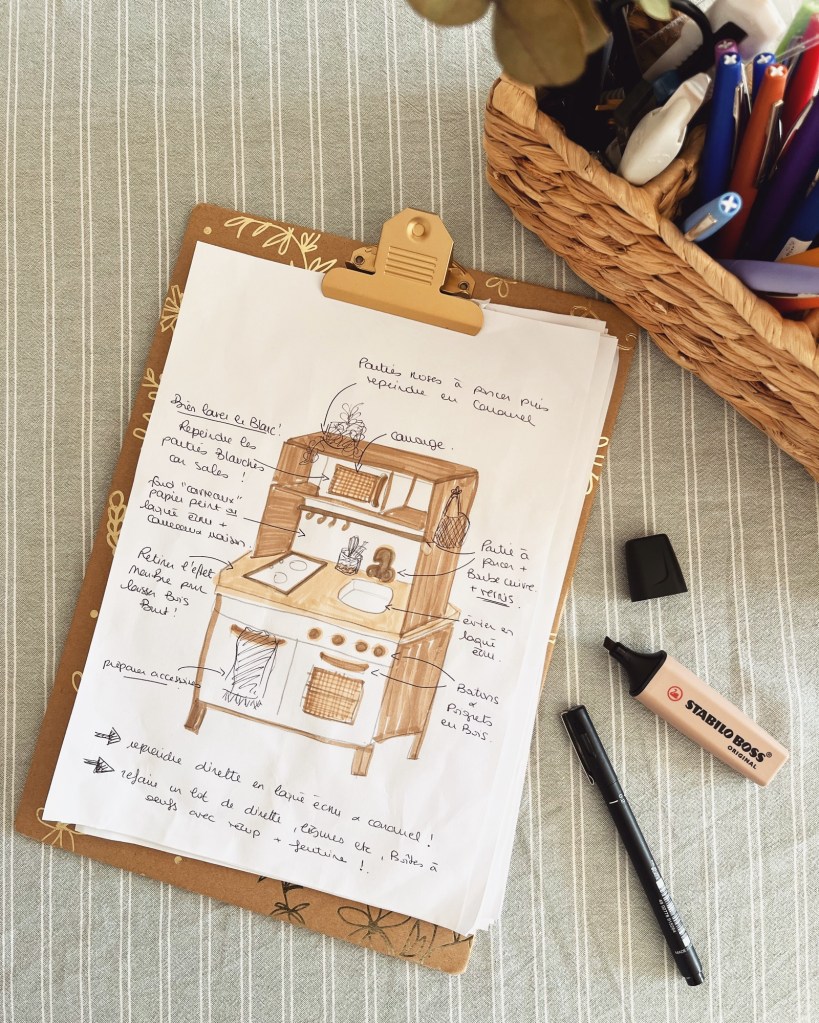 Parties roses à poncer puis
repeindre en Caramel
Bien laver le Blanc!
Repeindre les
parties Blanches
car sales !
cannage.
fond "carreaux"
papier peint ou
laqué écru +
carreaux maison.
Retirer l'effet
marbre pour
laisser Bois
Brut!
Partie à
poncer +
Bombe cuivre.
+ vernis.
évier en
laqué
écru.
préparer accessoires
Boutons
&
Poignets
en Bois.
reprendre dinette en laqué écru & caramel !
refaire un lot de dinette, légumes etc, Boîtes à
oeufs avec récup + feutrine !.
STABILO BOSS
ORIGINAL